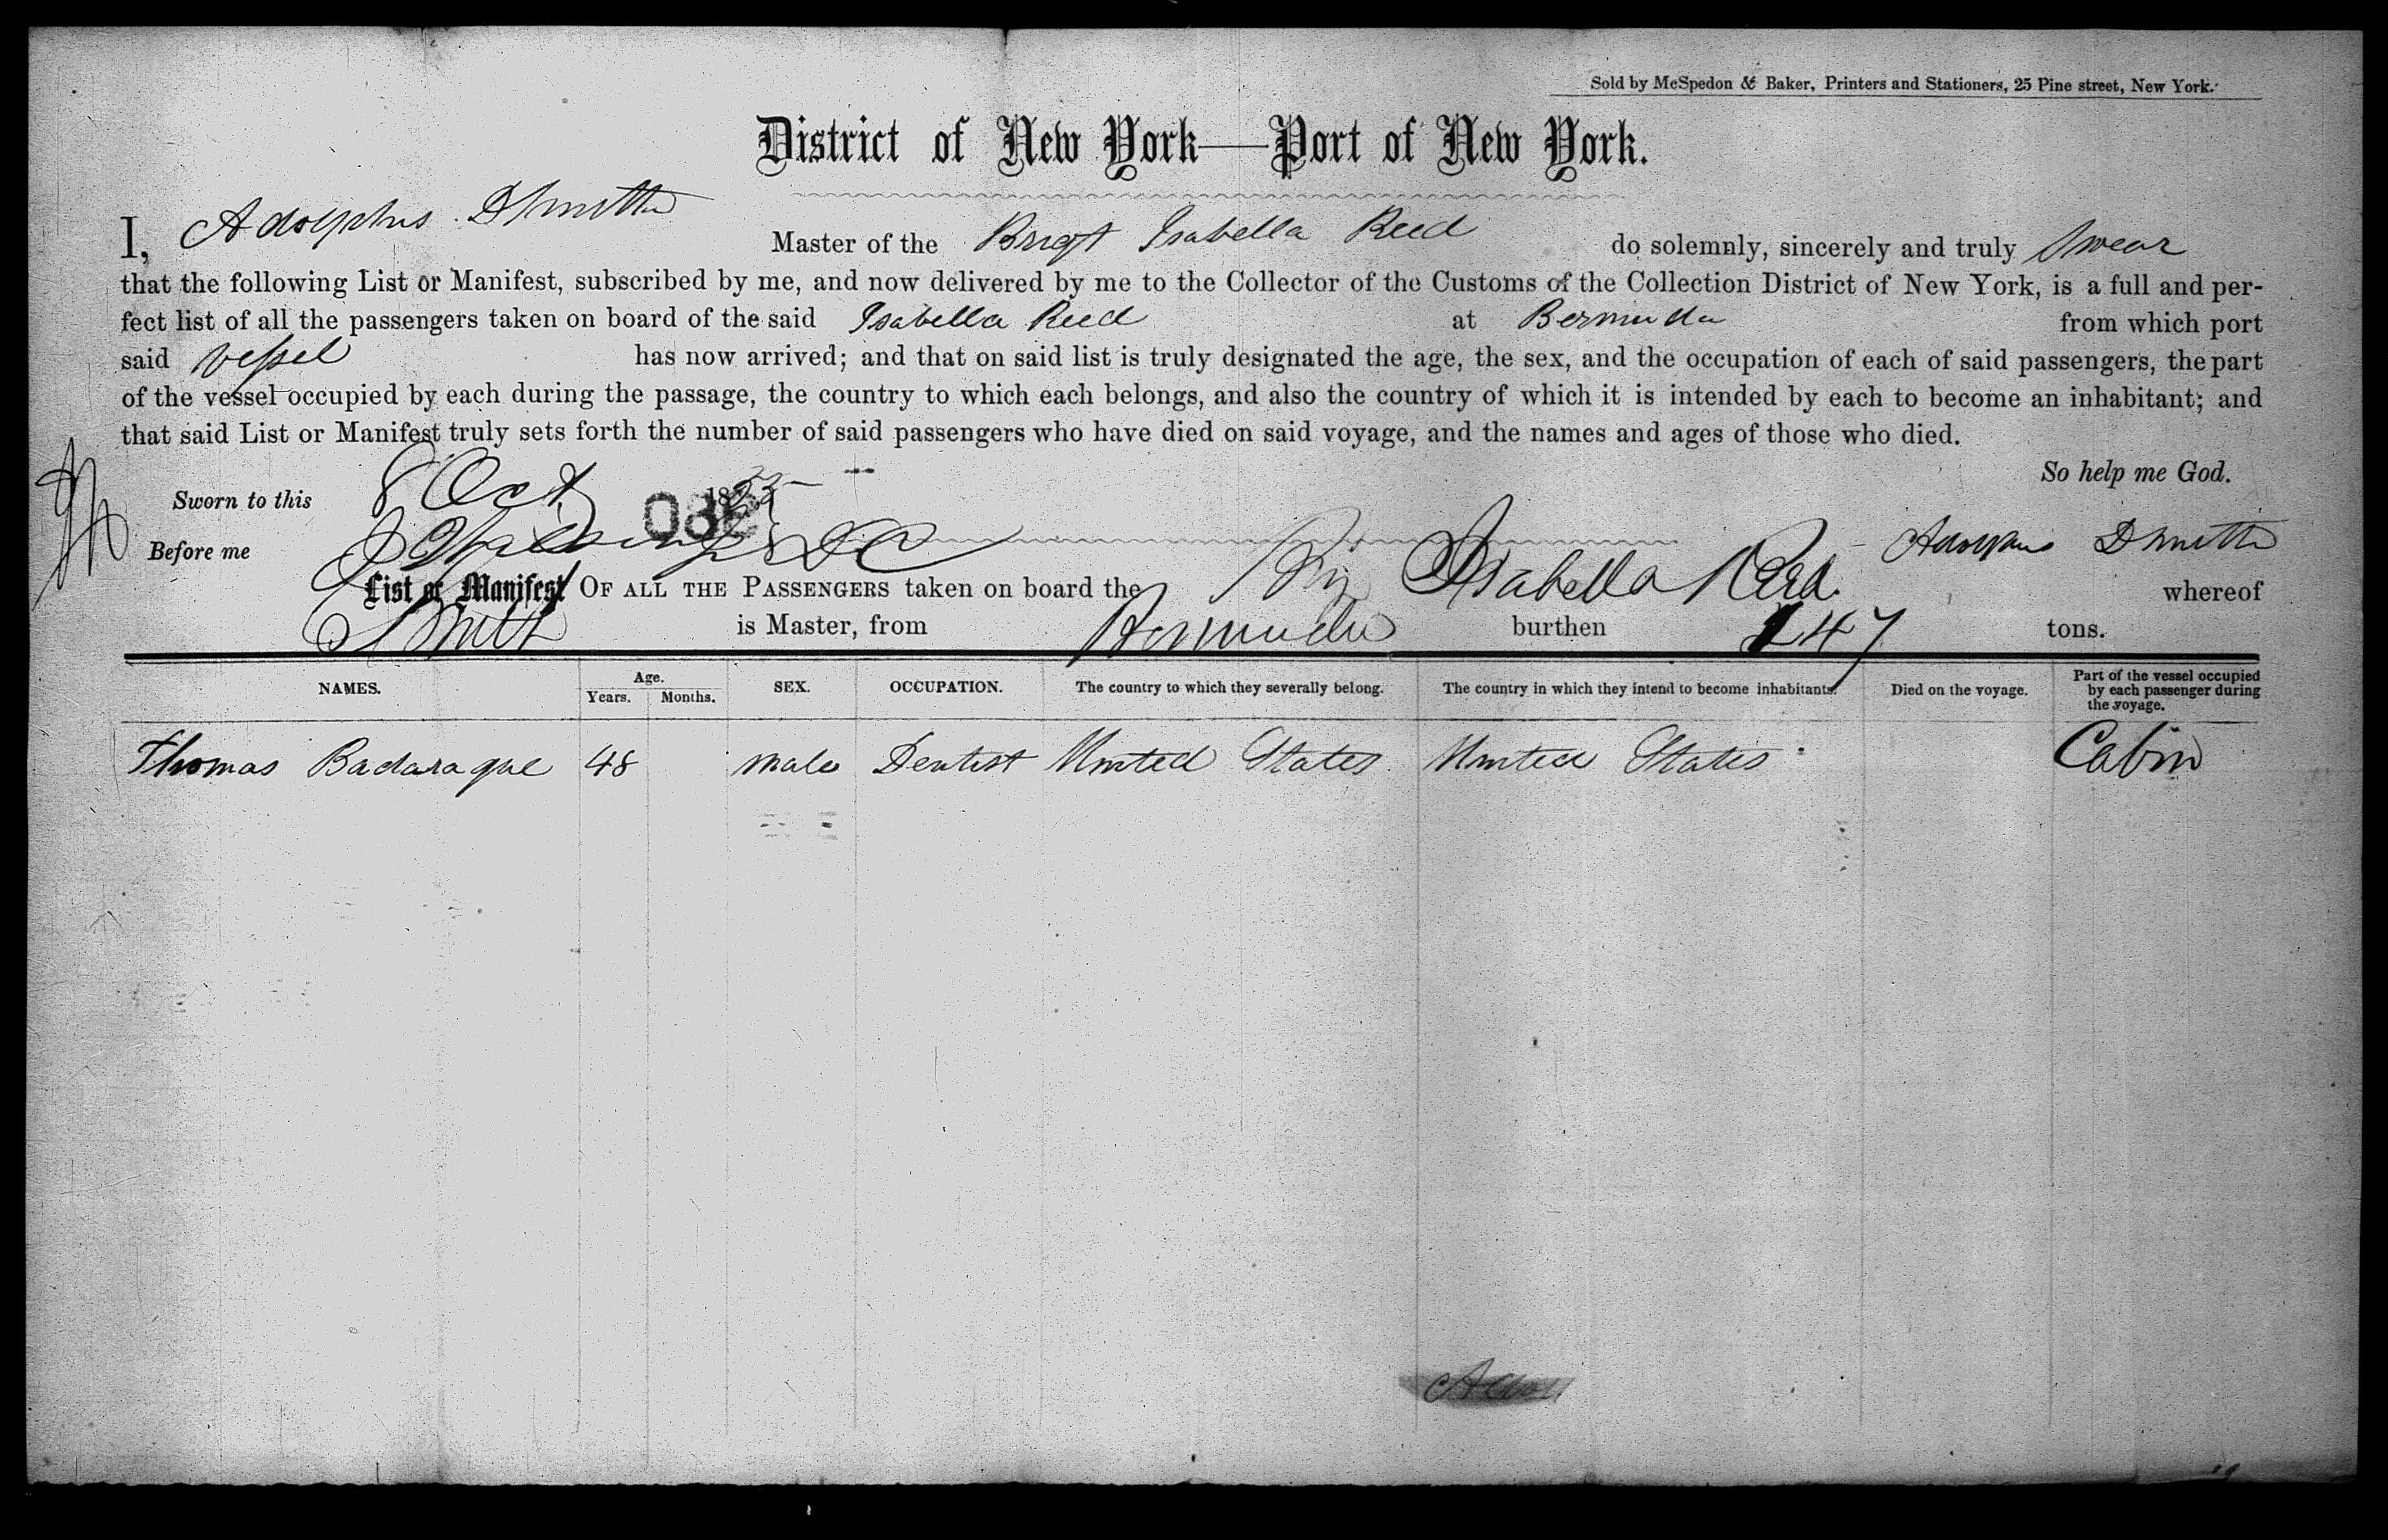 Sold by McSpedon & Baker, Printers and Stationers, 25 Pine street, New York.
District of New York—Port of New York.
I, Adolphus D Smith Master of the Brigt Isabella Reed do solemnly, sincerely and truly Swear
that the following List or Manifest, subscribed by me, and now delivered by me to the Collector of the Customs of the Collection District of New York, is a full and per-
fect list of all the passengers taken on board of the said Isabella Reed at Bermuda from which port
said vessel has now arrived; and that on said list is truly designated the age, the sex, and the occupation of each of said passengers, the part
of the vessel occupied by each during the passage, the country to which each belongs, and also the country of which it is intended by each to become an inhabitant; and
that said List or Manifest truly sets forth the number of said passengers who have died on said voyage, and the names and ages of those who died.
So help me God.
Sworn to this 8 Oct 1855
Before me Adolphus D Smith
List or Manifest OF ALL THE PASSENGERS taken on board the Brig Isabella Reed whereof
Smith is Master, from Bermuda burthen 147 tons.
NAMES. Age. Years. Months. SEX. OCCUPATION. The country to which they severally belong. The country in which they intend to become inhabitants. Died on the voyage. Part of the vessel occupied by each passenger during the voyage.
Thomas Badaraque 48 male Dentist United States United States Cabin